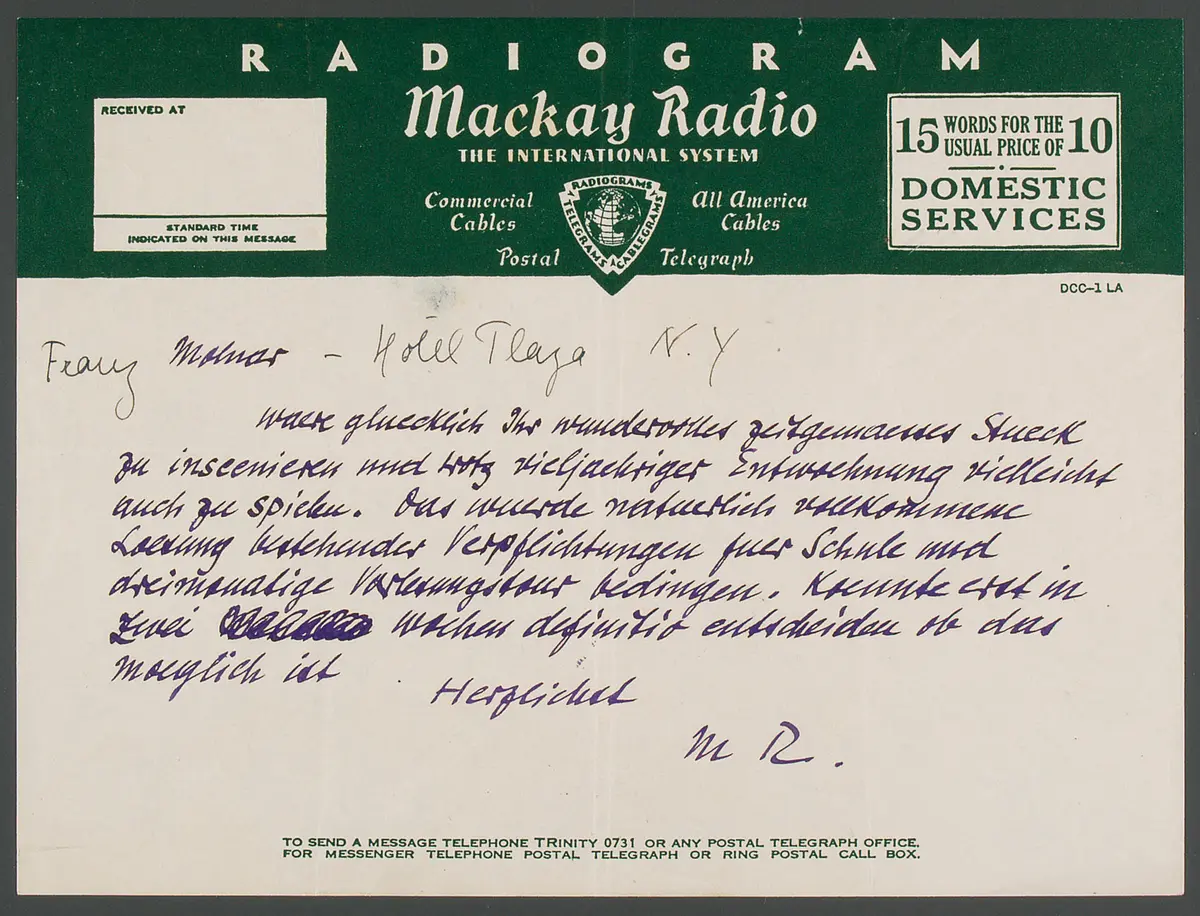 RADIOGRAM
Mackay Radio
THE INTERNATIONAL SYSTEM
RECEIVED AT
STANDARD TIME
INDICATED ON THIS MESSAGE
Commercial
Cables
All America
Cables
Postal Telegraph
RADIOGRAMS
TELEGRAMS
CABLEGRAMS
15 WORDS FOR THE
USUAL PRICE OF 10
DOMESTIC
SERVICES
DCC-1 LA
Franz Molnar - Hotel Plaza N.Y.
waere gluecklich Ihr wundervolles zeitgemaesses Stueck
zu inscenieren und trotz vieljaehriger Entwoehnung vielleicht
auch zu spielen. Das wuerde natuerlich vollkommene
Loesung bestehender Verpflichtungen fuer Schule und
dreimonatige Vorlesungstour bedingen. Koennte erst in
zwei wochen definitiv entscheiden ob das
moeglich ist
Herzlichst
M R.
TO SEND A MESSAGE TELEPHONE TRINITY 0731 OR ANY POSTAL TELEGRAPH OFFICE.
FOR MESSENGER TELEPHONE POSTAL TELEGRAPH OR RING POSTAL CALL BOX.